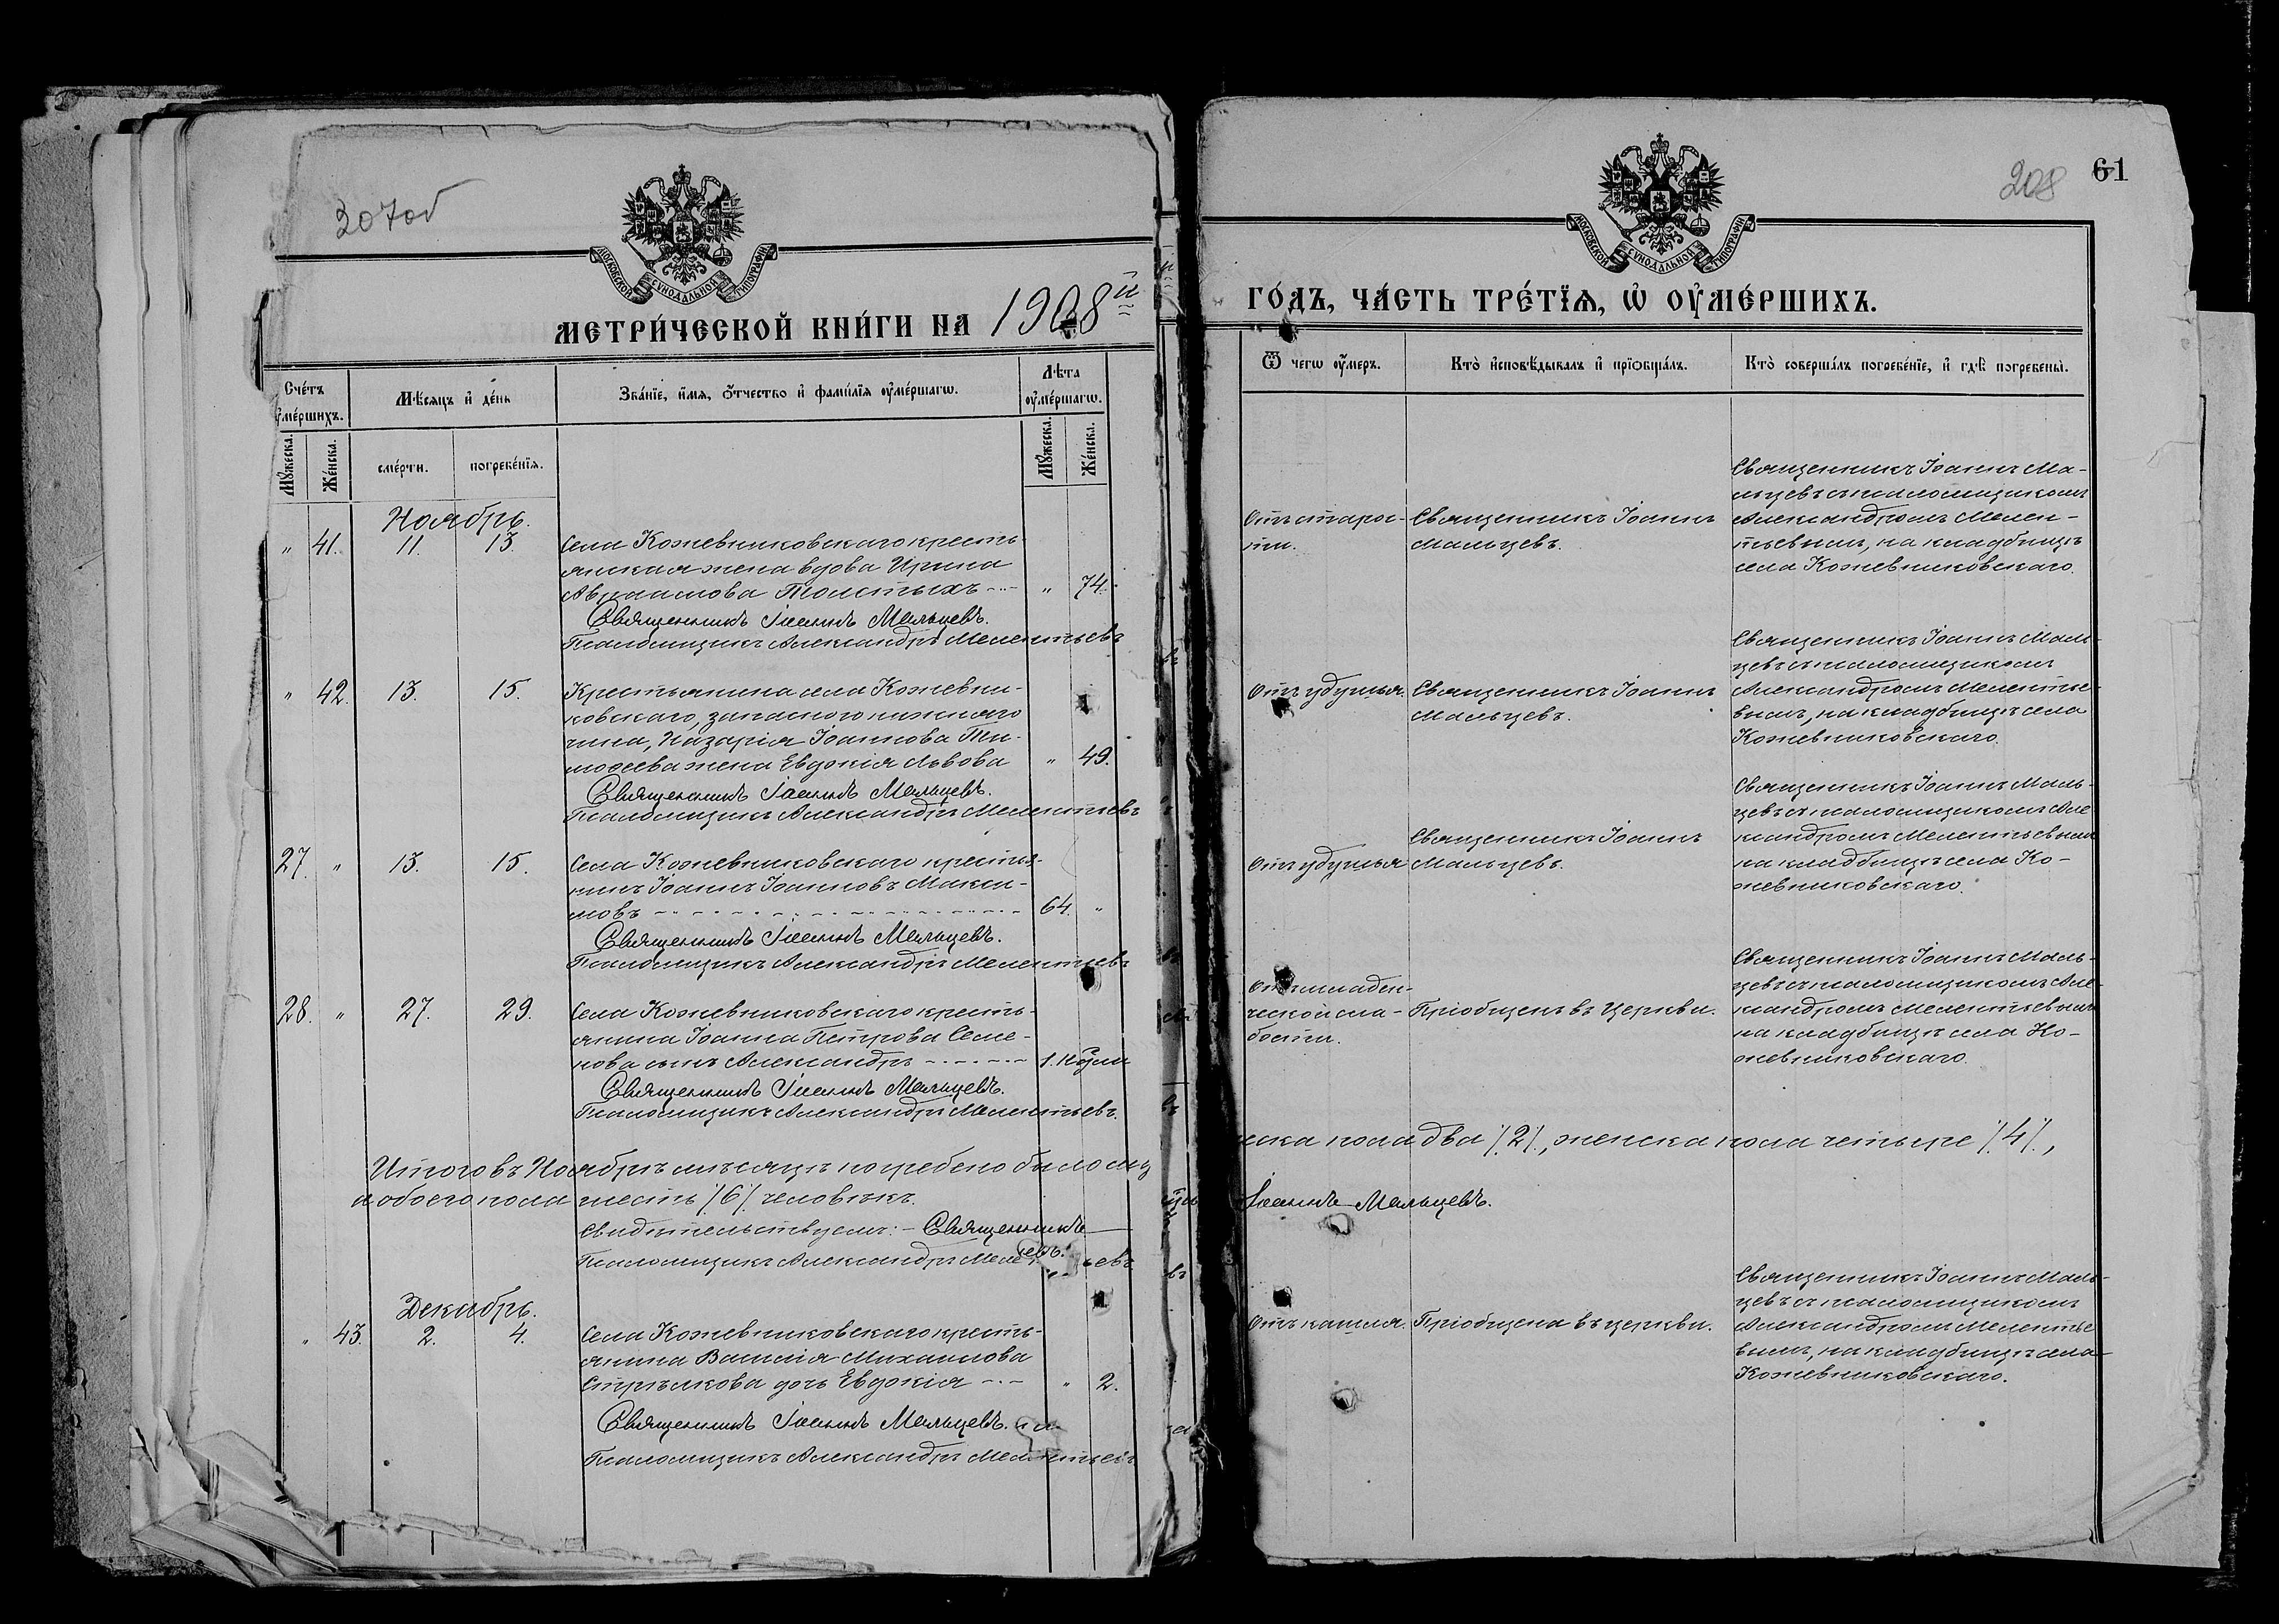 207об
МОСКОВСКОЙ СѴНОДАЛЬНОЙ ТИПОГРАФІИ
МЕТРИ́ЧЕСКОЙ КНИ́ГИ НА 1908й
Сче́тъ оу҆ме́ршихъ.
Мѣ́сяцъ и҆ де́нь
Зва́нїе, и҆́мя, ѻ҆́тчество и҆ фами́лїя оу҆ме́ршагѡ.
Лѣ́та оу҆ме́ршагѡ.
Мꙋ́жеска.
Же́нска.
сме́рти.
погребе́нїя.
Мꙋ́жеска.
Же́нска.
Ноябрь.
" 41. 11. 13. Села Кожевниковскаго кресть-
янская жена вдова Ирина
Авраамова Толстыхъ " 74.
Священникъ Іоаннъ Мальцевъ.
Псаломщикъ Александръ Мелентьевъ
" 42. 13. 15. Крестьянина села Кожевни-
ковскаго, запаснаго нижняго
чина, Назарія Іоаннова Ти-
мофеева жена Евдокія Львова " 49.
Священникъ Іоаннъ Мальцевъ.
Псаломщикъ Александръ Мелентьевъ
27. " 13. 15. Села Кожевниковскаго крестья-
нинъ Іоаннъ Іоанновъ Макси-
мовъ 64. "
Священникъ Іоаннъ Мальцевъ.
Псаломщикъ Александръ Мелентьевъ
28. " 27. 29. Села Кожевниковскаго кресть-
янина Іоанна Петрова Семе-
нова сынъ Александръ 1.
Священникъ Іоаннъ Мальцевъ.
Псаломщикъ Александръ Мелентьевъ.
Итого въ Ноябрѣ мѣсяцѣ погребено было муж
а обоего пола шесть /6/ человѣкъ.
Свидѣтельствуемъ: – Священникъ
Псаломщикъ Александръ Мелентьевъ
Декабрь.
" 43. 2. 4. Села Кожевниковскаго кресть-
янина Василія Михаилова
Стрѣлкова дочь Евдокія " 2.
Священникъ Іоаннъ Мальцевъ.
Псаломщикъ Александръ Мелентьевъ
208
61
МОСКОВСКОЙ СѴНОДАЛЬНОЙ ТИПОГРАФІИ
ГО́ДЪ, ЧА́СТЬ ТРЕ́ТЇѦ, Ѡ҆ ОУ҆МЕ́РШИХЪ.
Ѿ чегѡ оу҆́меръ.
Кто̀ и҆сповѣ́дывалъ и҆ прїѻбща́лъ.
Кто̀ соверша́лъ погребе́нїе, и҆ гдѣ̀ погребены̀.
Отъ старос-
ти.
Священникъ Іоаннъ
Мальцевъ.
Священникъ Іоаннъ Ма-
льцевъ съ псаломщикомъ
Александромъ Мелен-
тьевымъ, на кладбищѣ
села Кожевниковскаго.
Отъ удушья.
Священникъ Іоаннъ
Мальцевъ.
Священникъ Іоаннъ Маль-
цевъ съ псаломщикомъ
Александромъ Мелентье-
вымъ, на кладбищѣ села
Кожевниковскаго.
Отъ удушья
Священникъ Іоаннъ
Мальцевъ.
Священникъ Іоаннъ Маль-
цевъ съ псаломщикомъ Але
ксандромъ Мелентьевымъ
на кладбищѣ села Ко-
жевниковскаго.
Отъ младен-
ческой сла-
бости.
Пріобщенъ въ церкви.
Священникъ Іоаннъ Маль-
цевъ съ псаломщикомъ Але-
ксандромъ Мелентьевымъ
на кладбищѣ села Ко-
жевниковскаго.
еска пола два /2/, женска пола четыре /4/,
Іоаннъ Мальцевъ.
Отъ кашля.
Пріобщена въ церкви.
Священникъ Іоаннъ Маль-
цевъ съ псаломщикомъ
Александромъ Мелентье
вымъ, на кладбищѣ села
Кожевниковскаго.